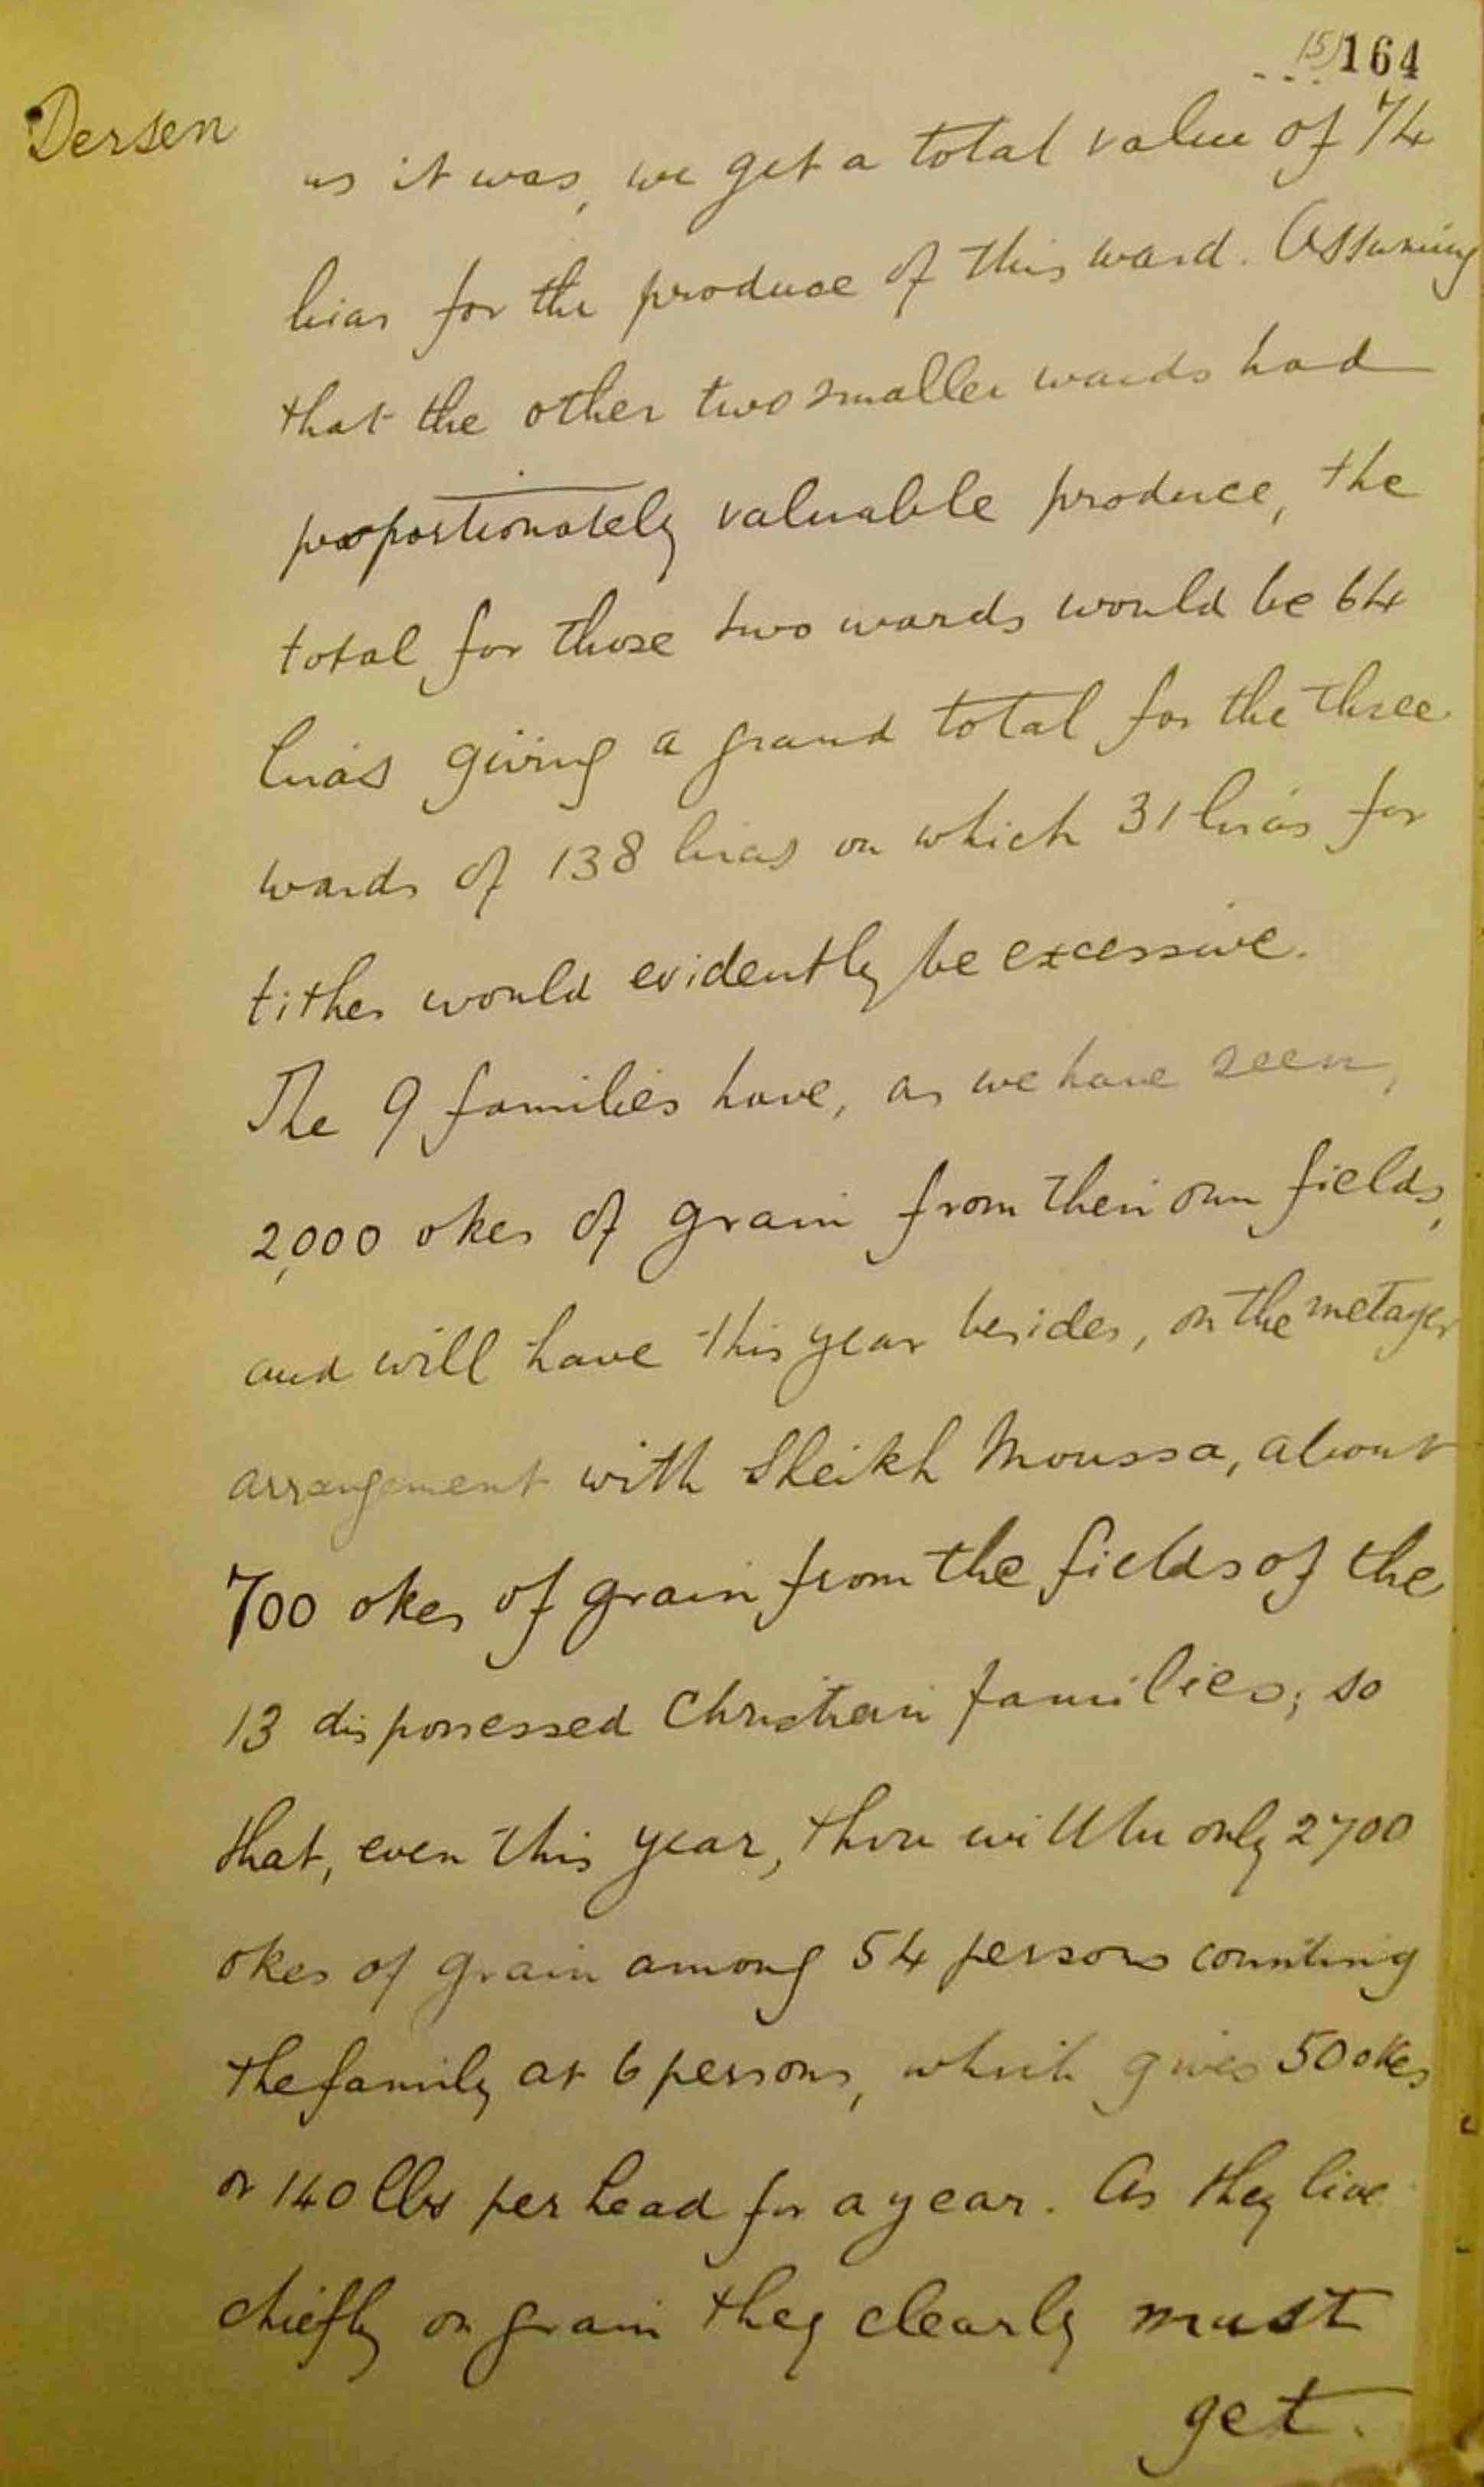 (5) 164
Dersen
as it was, we get a total value of 74
liras for the produce of this ward. Assuming
that the other two smaller wards had
proportionately valuable produce, the
total for those two wards would be 64
liras giving a grand total for the three
wards of 138 liras on which 31 liras for
tithes would evidently be excessive.
The 9 families have, as we have seen,
2,000 okes of grain from their own fields,
and will have this year besides, on the metayer
arrangement with Sheikh Moussa, about
700 okes of grain from the fields of the
13 dispossessed Christian families; so
that, even this year, there will be only 2700
okes of grain among 54 persons counting
the family at 6 persons, which gives 50 okes
or 140 lbs per head for a year. As they live
chiefly on grain they clearly must
get.